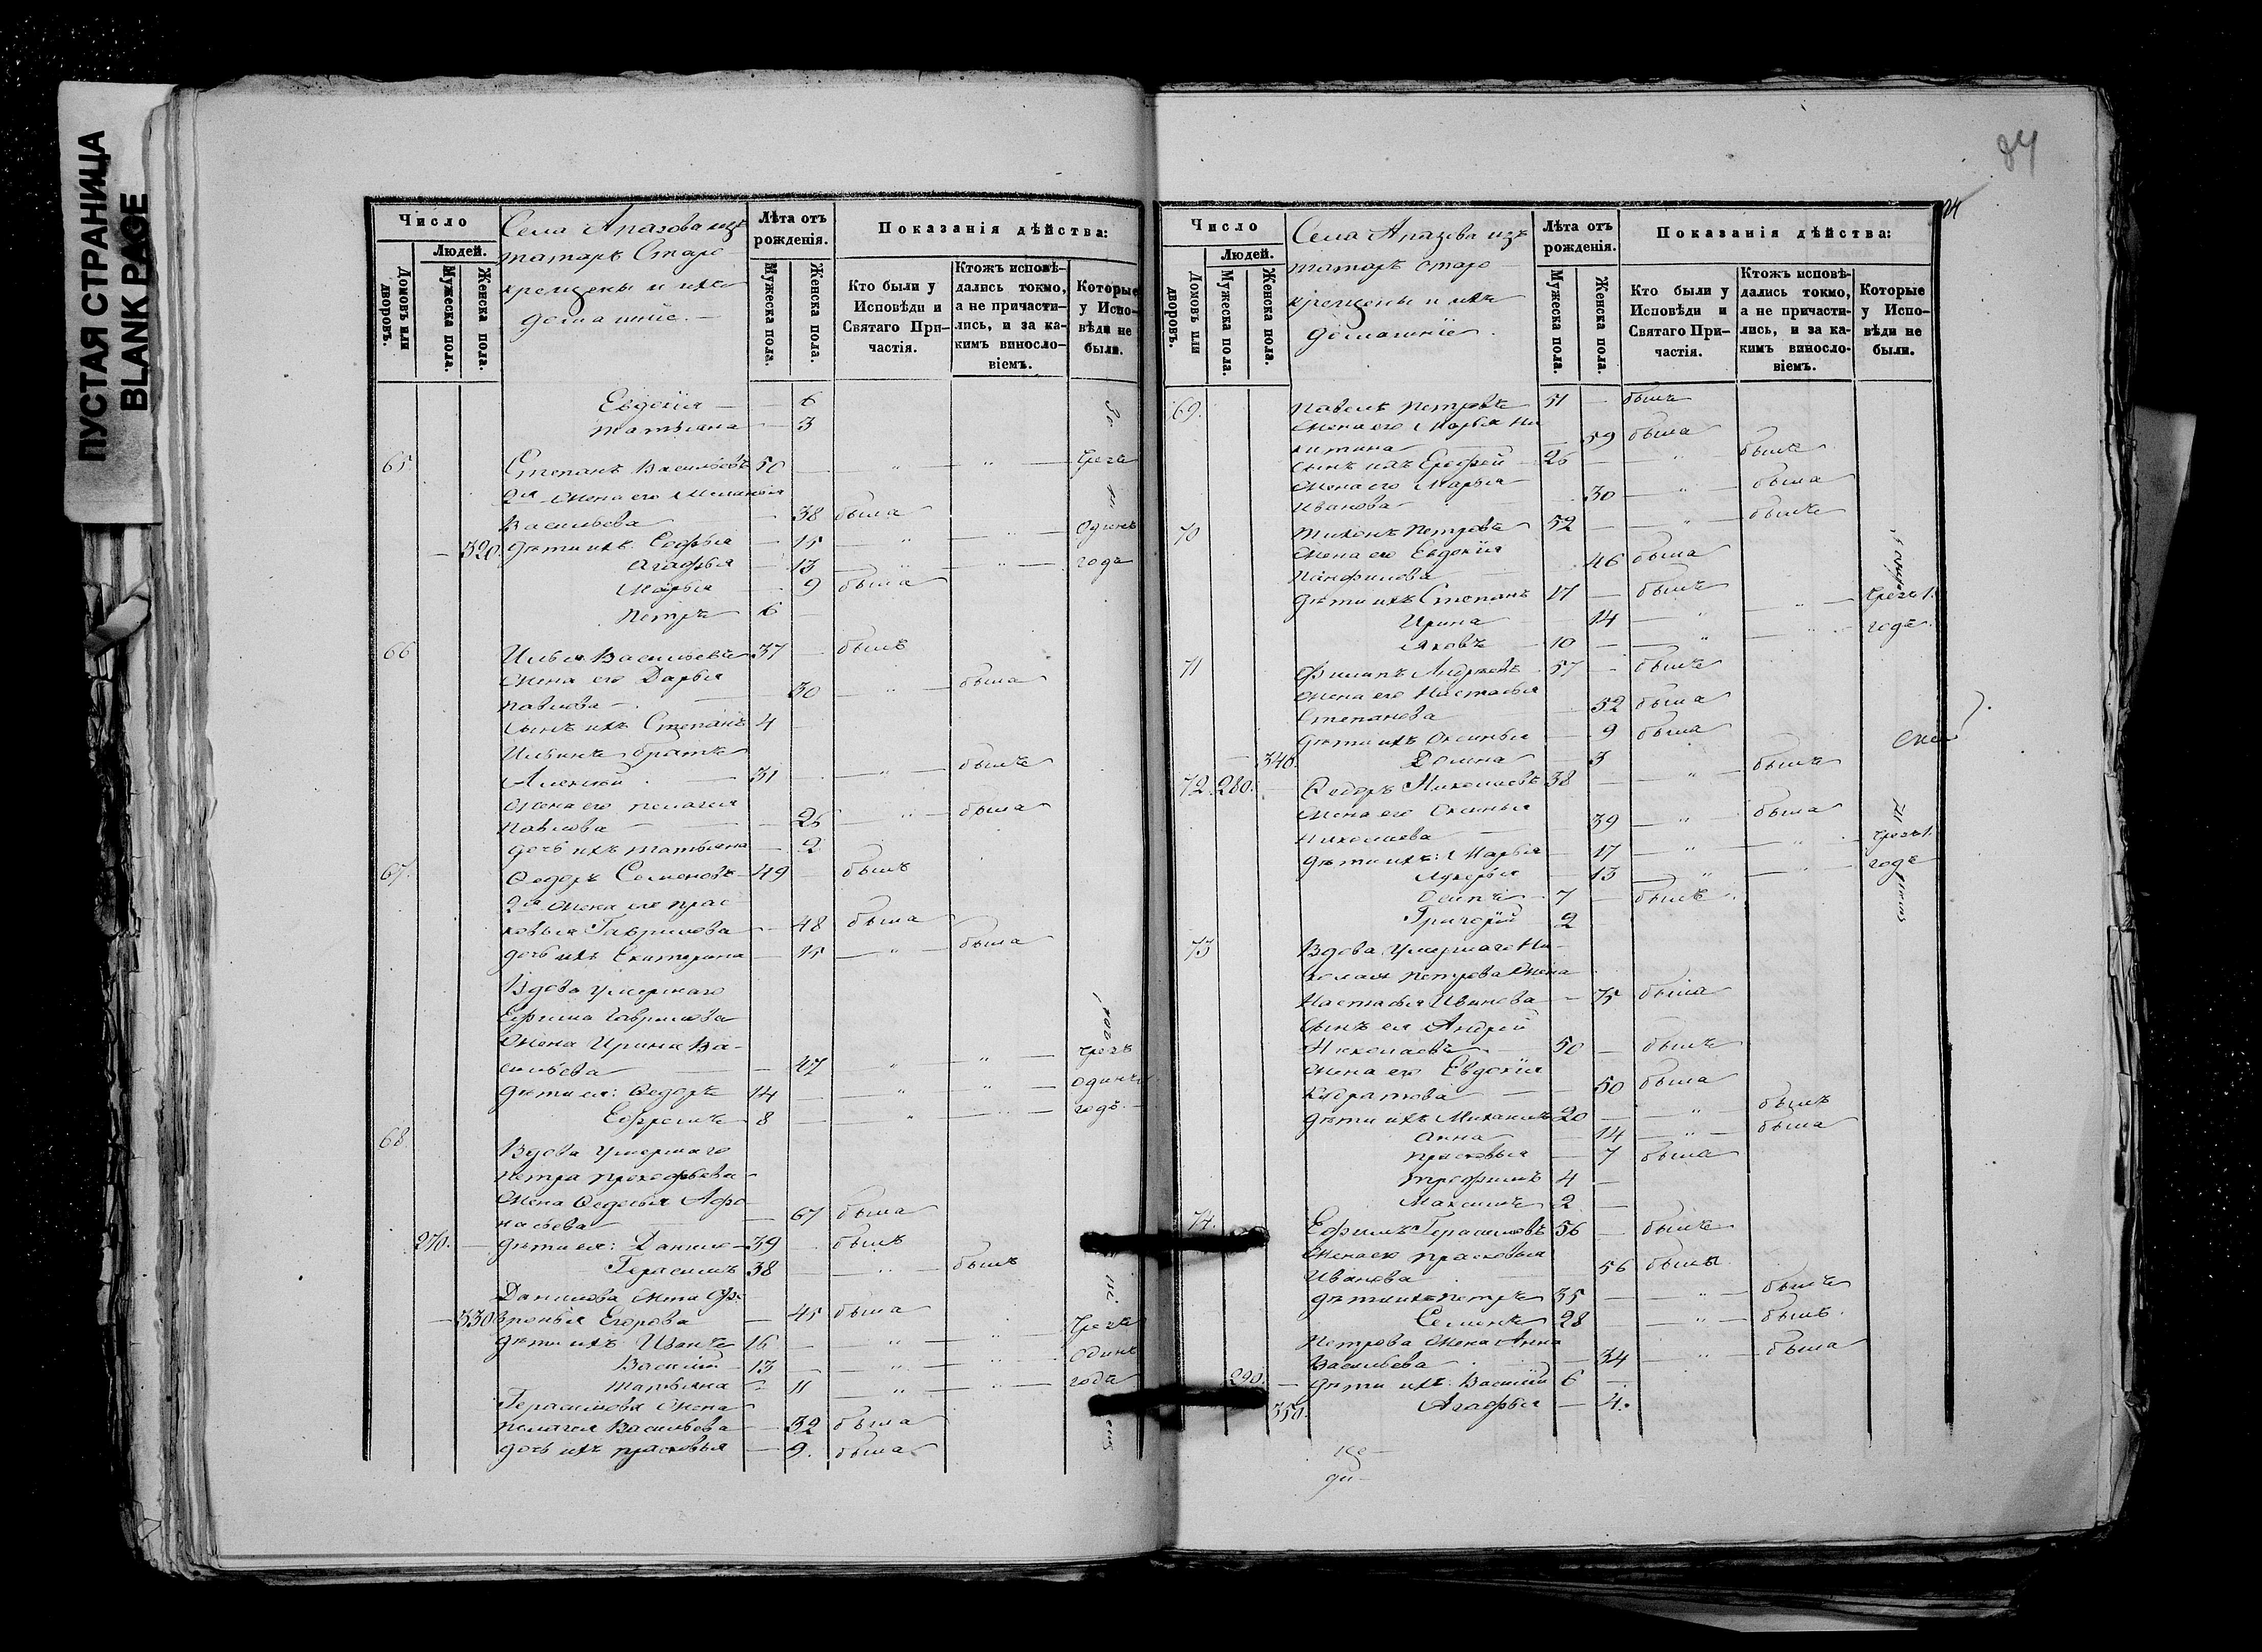 ПУСТАЯ СТРАНИЦА
BLANK PAGE
84
Число
Людей.
Домовъ или дворовъ.
Мужеска пола.
Женска пола.
Села Апазова изъ
татаръ Старо
крещены и ихъ
домашніе. —
Лѣта отъ рожденія.
Мужеска пола.
Женска пола.
Показанія дѣйства:
Кто были у Исповѣди и Святаго Причастія.
Ктожъ исповѣдались токмо, а не причастились, и за какимъ винословіемъ.
Которые у Исповѣди не были.
Евдокія — 6
Татьяна — 3
65 Степанъ Васильевъ 50 — " — " — чрезъ
2я жена его Меланія
Васильева — 38 была
— 320. дѣти ихъ: Софья — 15 — " — " — одинъ
Агафья — 13 — " — " — годъ
Марья — 9 была
Петръ 6 —
66 Илья Васильевъ 37 — былъ
Жена его Дарья
Павлова — 30 — " — была
сынъ ихъ Степанъ 4 —
Ильинъ братъ
Алексѣй — 31 — " — былъ
Жена его Пелагея
Павлова — 25 — " — была
дочь ихъ Татьяна — 2
67. Ѳедоръ Семеновъ 49 — былъ
2я жена его Прас
ковья Гаврилова — 48 была
дочь ихъ Екатерина — 15 — " — была
Вдова умершаго
Ефима Гаврилова
Жена Ирина Ва-
сильева — 47 — " — " — чрезъ
дѣти ея: Ѳедоръ 14 — " — " — одинъ
Ефремъ 8 — " — " — годъ.
68 Вдова умершаго
Петра Прокофьева
Жена Ѳедосья Афо
насьева — 67 была
270. — дѣти ея: Данило 39 — былъ
Герасимъ 38 — " — былъ
Данилова жена Оф-
— 330 Егорова — 45 была
дѣти ихъ Иванъ 16 — " — " — чрезъ
Василій 13 — " — " — одинъ
Татьяна — 11 — " — " — годъ
Герасимова жена
Пелагея Васильева — 32 была
дочь ихъ Прасковья — 9. была
Число
Людей.
Домовъ или дворовъ.
Мужеска пола.
Женска пола.
Села Апазова изъ
татаръ старо
крещены и ихъ
домашніе.
Лѣта отъ рожденія.
Мужеска пола.
Женска пола.
Показанія дѣйства:
Кто были у Исповѣди и Святаго Причастія.
Ктожъ исповѣдались токмо, а не причастились, и за какимъ винословіемъ.
Которые у Исповѣди не были.
69. Павелъ Петровъ 51 — былъ
Жена его Марья Ни
китина — 59 была
сынъ ихъ Ерофей 26 — " — былъ
Жена его Марья
Иванова — 30 — " — была
70 Тихонъ Петровъ 52 — " — былъ
Жена его Евдокія
Панфилова — 46 была
дѣти ихъ Степанъ 17 — былъ
Ирина — 14 — " — " — чрезъ 1.
Яковъ 10 — " — " — годъ.
71 Филипъ Андреевъ 57 — былъ
Жена его Настасья
Степанова — 52 была
дѣти ихъ Оксинья — 9 была
— 340. Домна — 3
72. 280. — Ѳедоръ Николаевъ 38 — " — былъ
Жена его Оксинья
Николаева — 39 — " — была
дѣти ихъ: Марья — 17 — " — " — чрезъ 1.
Лукерья — 13 — " — " — годъ
Осипъ 7 — былъ
Григорій 2
73 Вдова умершаго Ни-
колая Петрова Жена
Настасья Иванова — 75 была
Сынъ ея Андрей
Николаевъ 50 — былъ
Жена его Евдокія
Кондратова — 50 была
дѣти ихъ Михаилъ 20 — " — былъ
Анна — 14 — " — была
Прасковья — 7 была
Трофимъ 4 —
Максимъ 2 —
74. Ефимъ Герасимовъ 56 — былъ
Жена его Прасковья
Иванова — 56 была
дѣти ихъ Петръ 35 — " — былъ
Семенъ 28 — " — былъ.
Петрова жена Анна
Васильева — 34 — " — была
290. — дѣти ихъ: Василій 6 —
350. Агафья — 4.